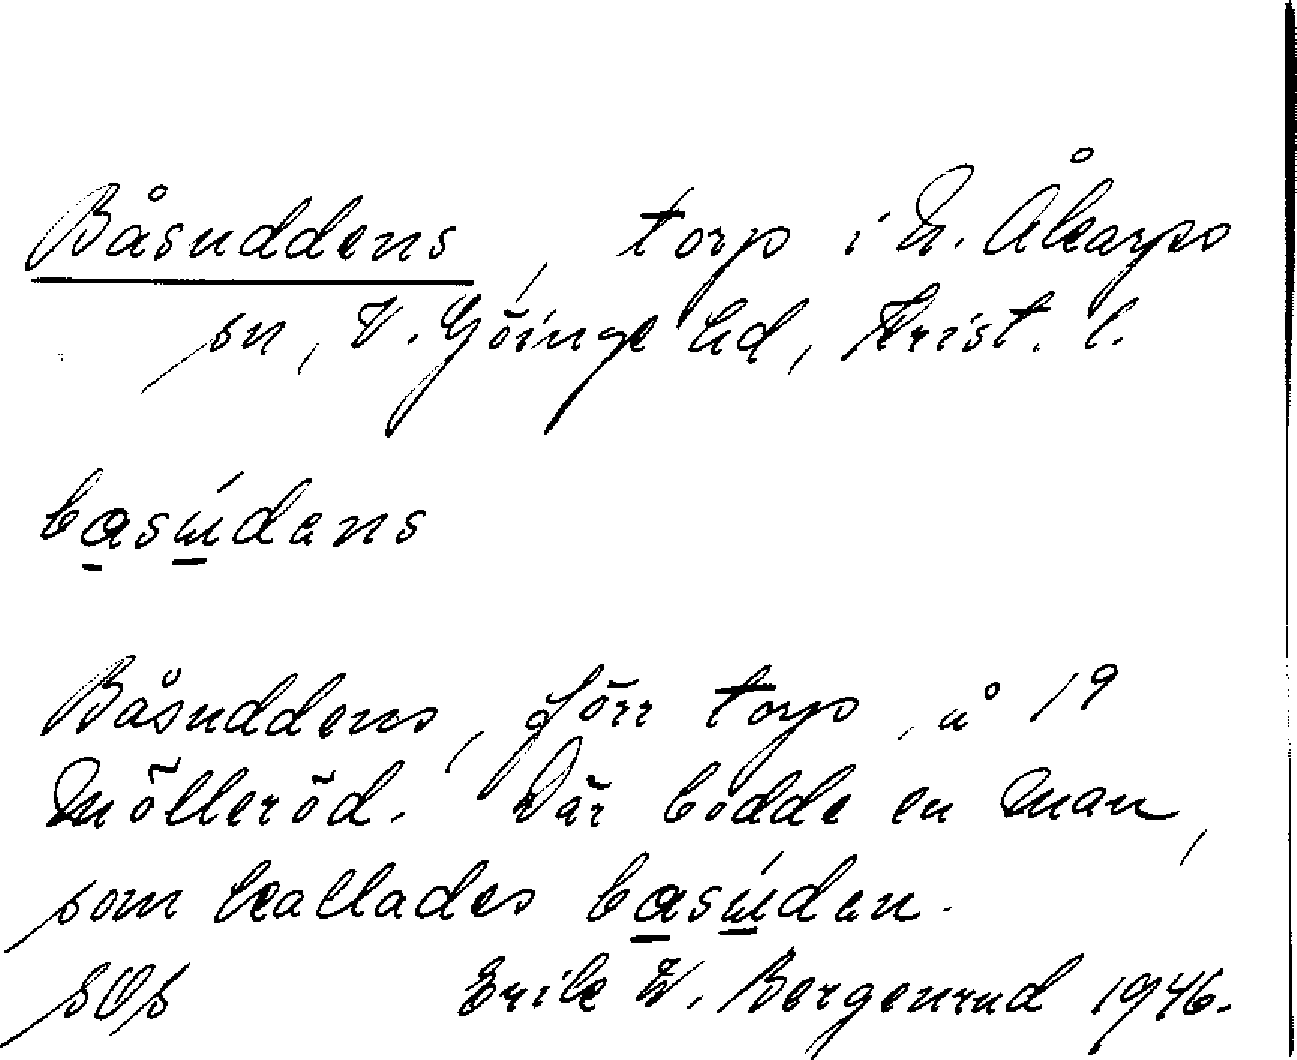 Båsuddens, torp i N. Åkarps
sn, V. Göinge hd, Krist. l.
basúdans
Båsuddens, förr torp, å 19
Mölleröd. Där bodde en man,
som kallades basúdan.
sOs Erik W. Bergenrud 1946.